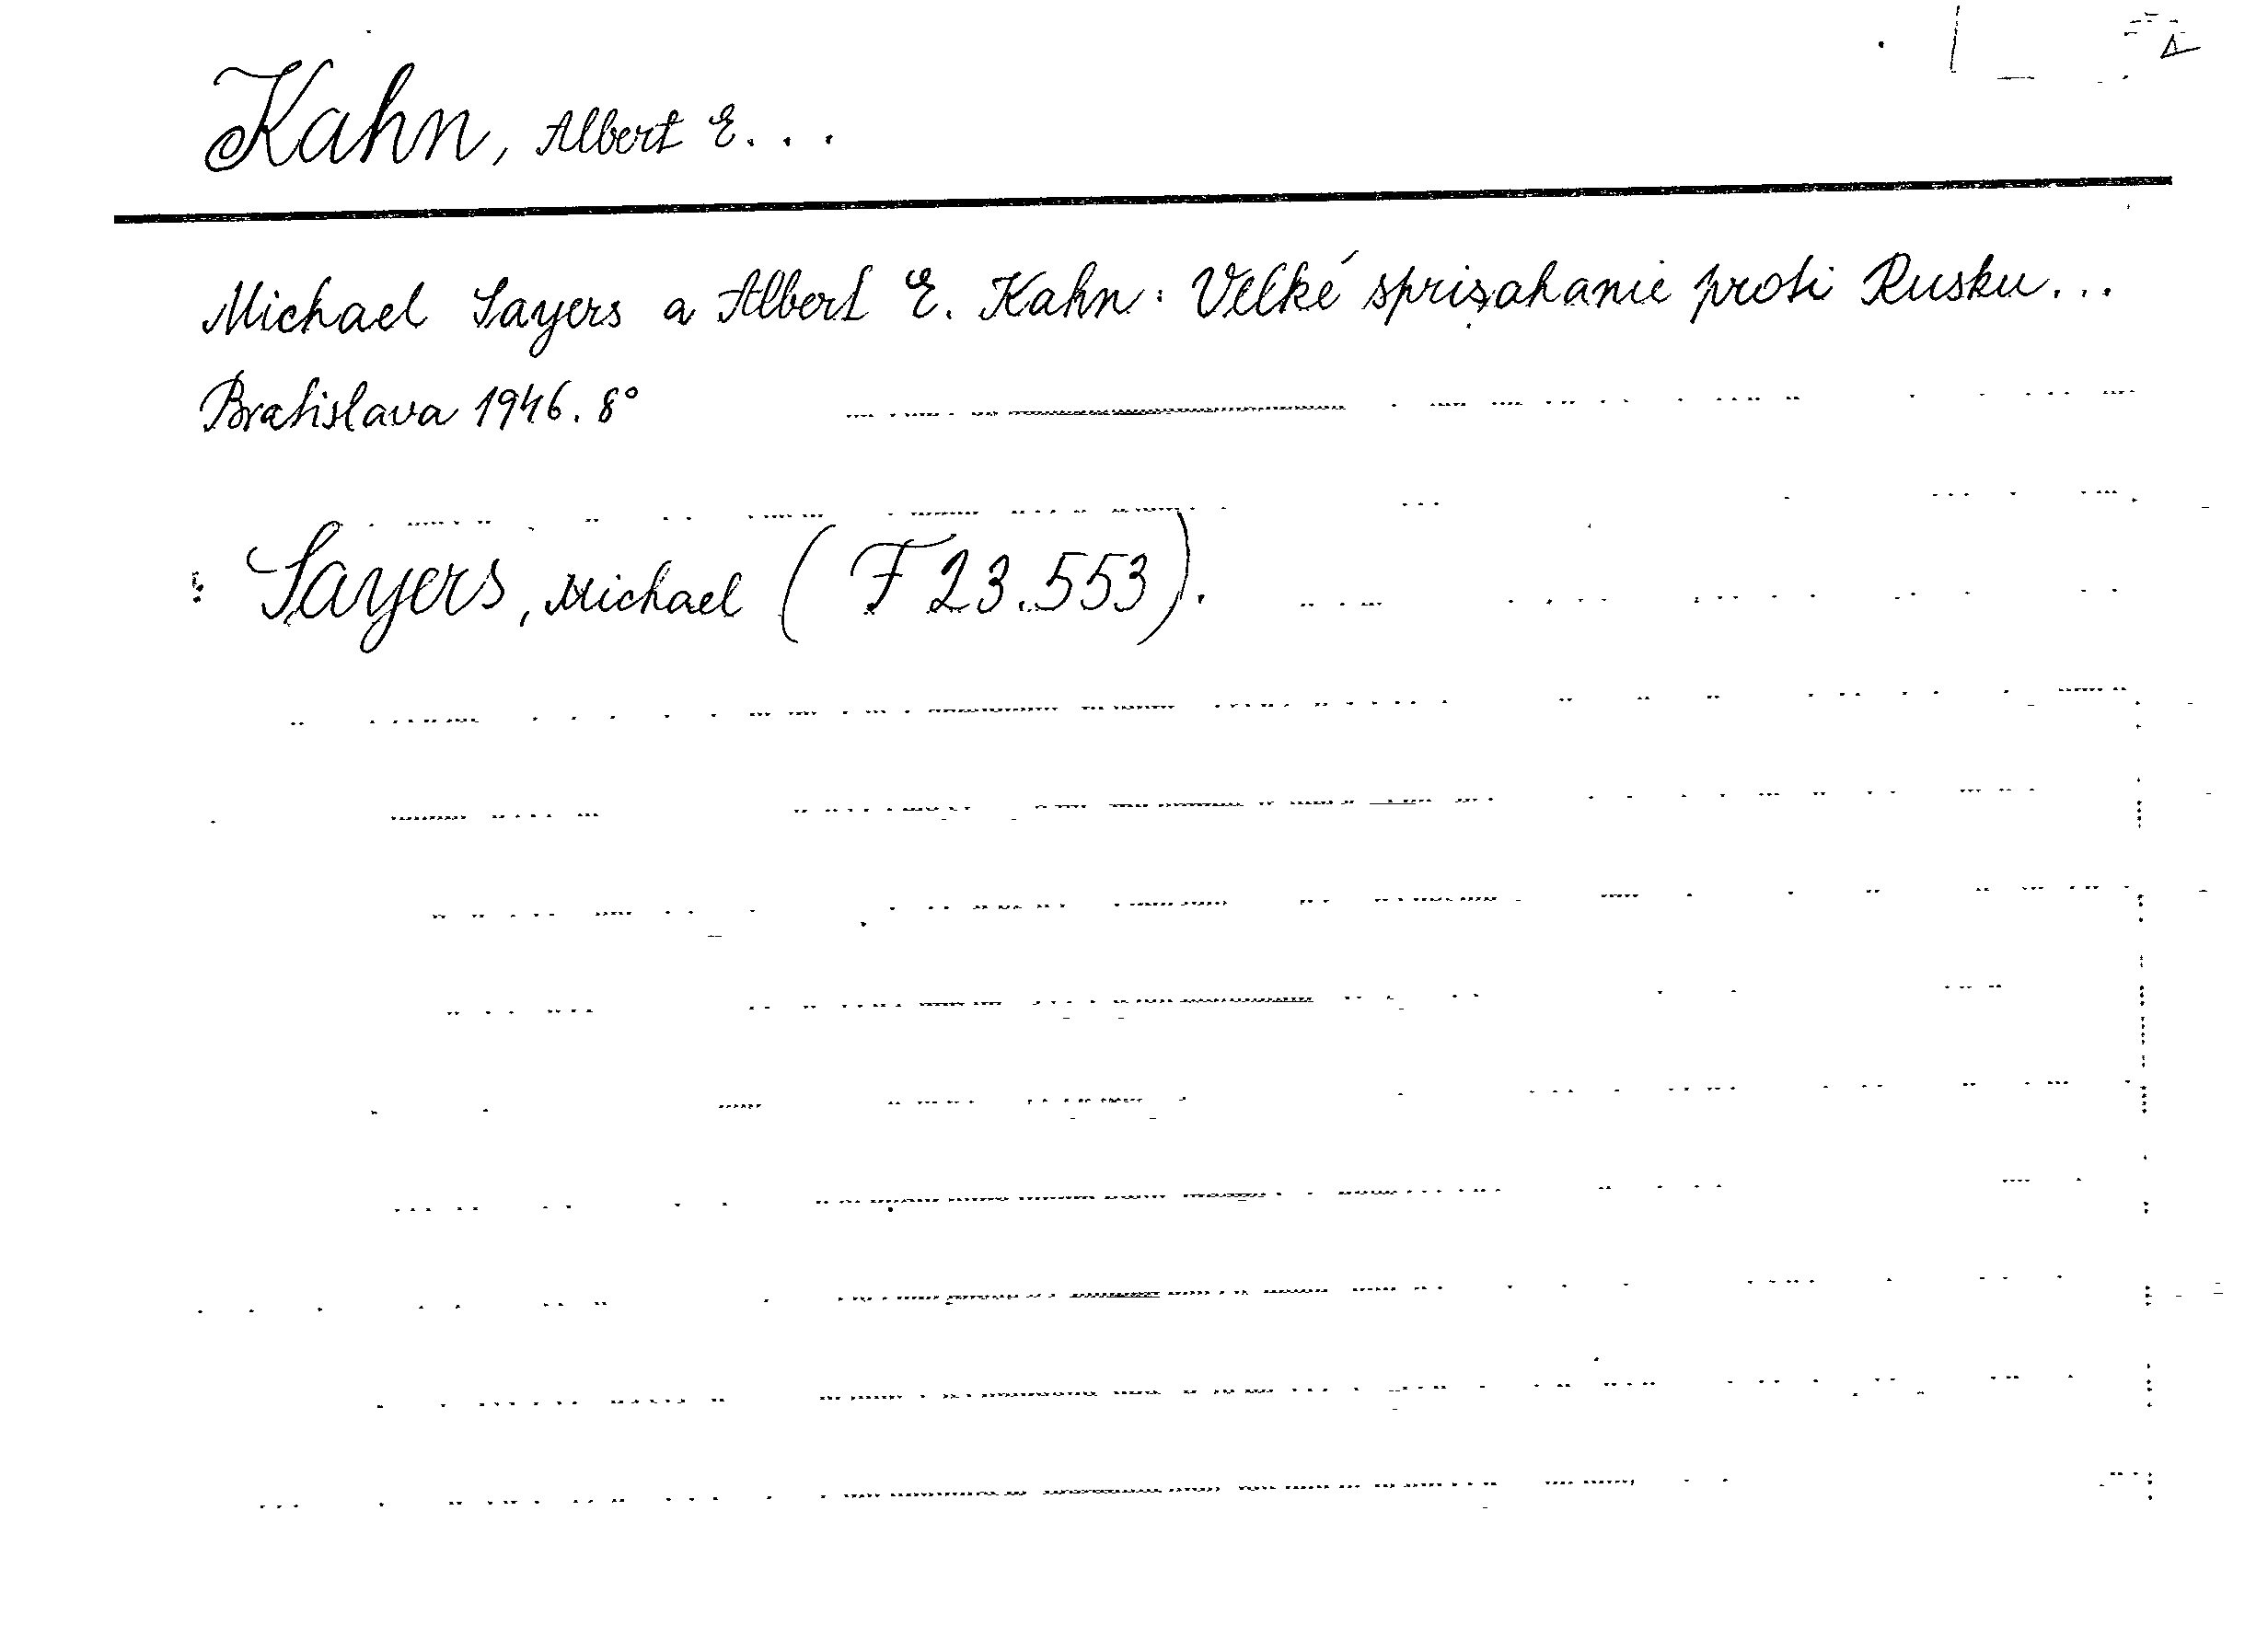 Kahn, Albert E...
Michael Sayers a Albert E. Kahn: Velké sprisahanie proti Rusku...
Bratislava 1946. 8°
: Sayers, Michael (F 23.553).